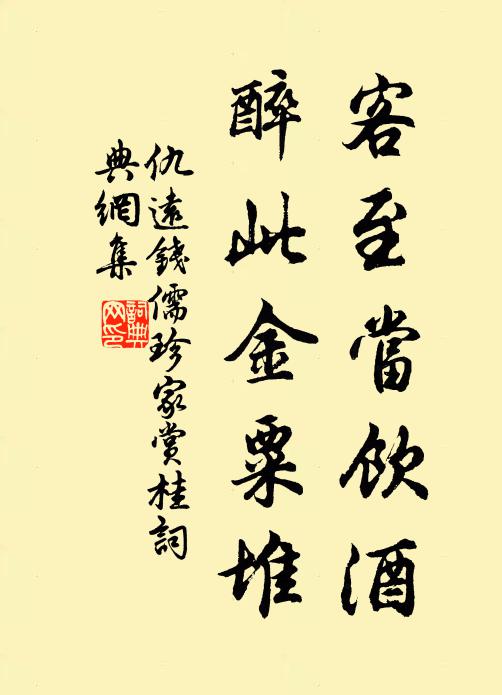 客至當飲酒
醉此金粟堆
仇遠錢儒珍家賞桂詞
典網集
詞典網印